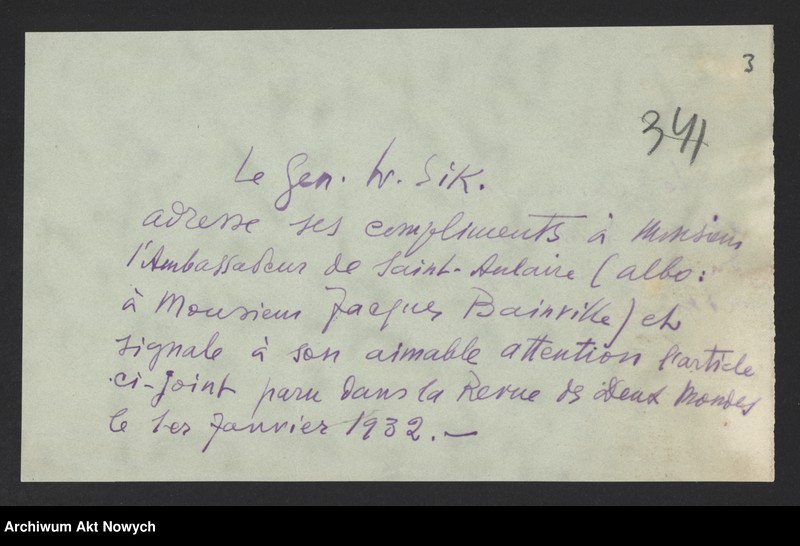 3
341
Le Gen. W. Sik.
adresse ses compliments à Monsieur
l'Ambassadeur de Saint-Aulaire (albo:
à Monsieur Jacques Bainville) et
signale à son aimable attention l'article
ci-joint paru dans la Revue des Deux Mondes
le 1er Janvier 1932. —
Archiwum Akt Nowych